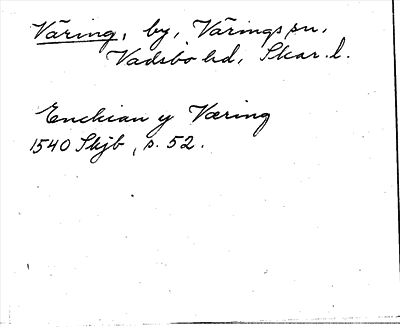 Väring, by, Värings sn,
Vadsbo hd, Skar. l.
Enckian y Væring
1540 Skjb, s. 52.